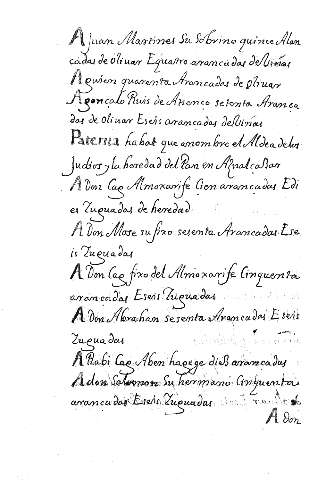 A Juan Martines Su Sobrino quince Alan
cadas de olivar Equatro arancadas de Viñas
A guien quarenta Arancadas de olivar
A gonçalo Ruis de Atienco setenta Aranca
das de olivar Eseis arancadas de Viñas
Paterna habat que anombre el Aldea de los
Judios y la heredad del Pan en Aznalcazar
A Don Çag Almoxarife Cien arancadas E di
es Zuguadas de heredad
A Don Mose su fixo sesenta Arancadas E se
is Zuguadas
A Don Çag fixo del Almoxarife Cinquenta
arancadas E seis Zuguadas
A Don Abrahan sesenta Arancadas E seis
Zuguadas
A Rabi Çag Aben hagege dies arancadas
A don Salomon Su hermano Cinquenta
arancadas E seis Zuguadas
A don